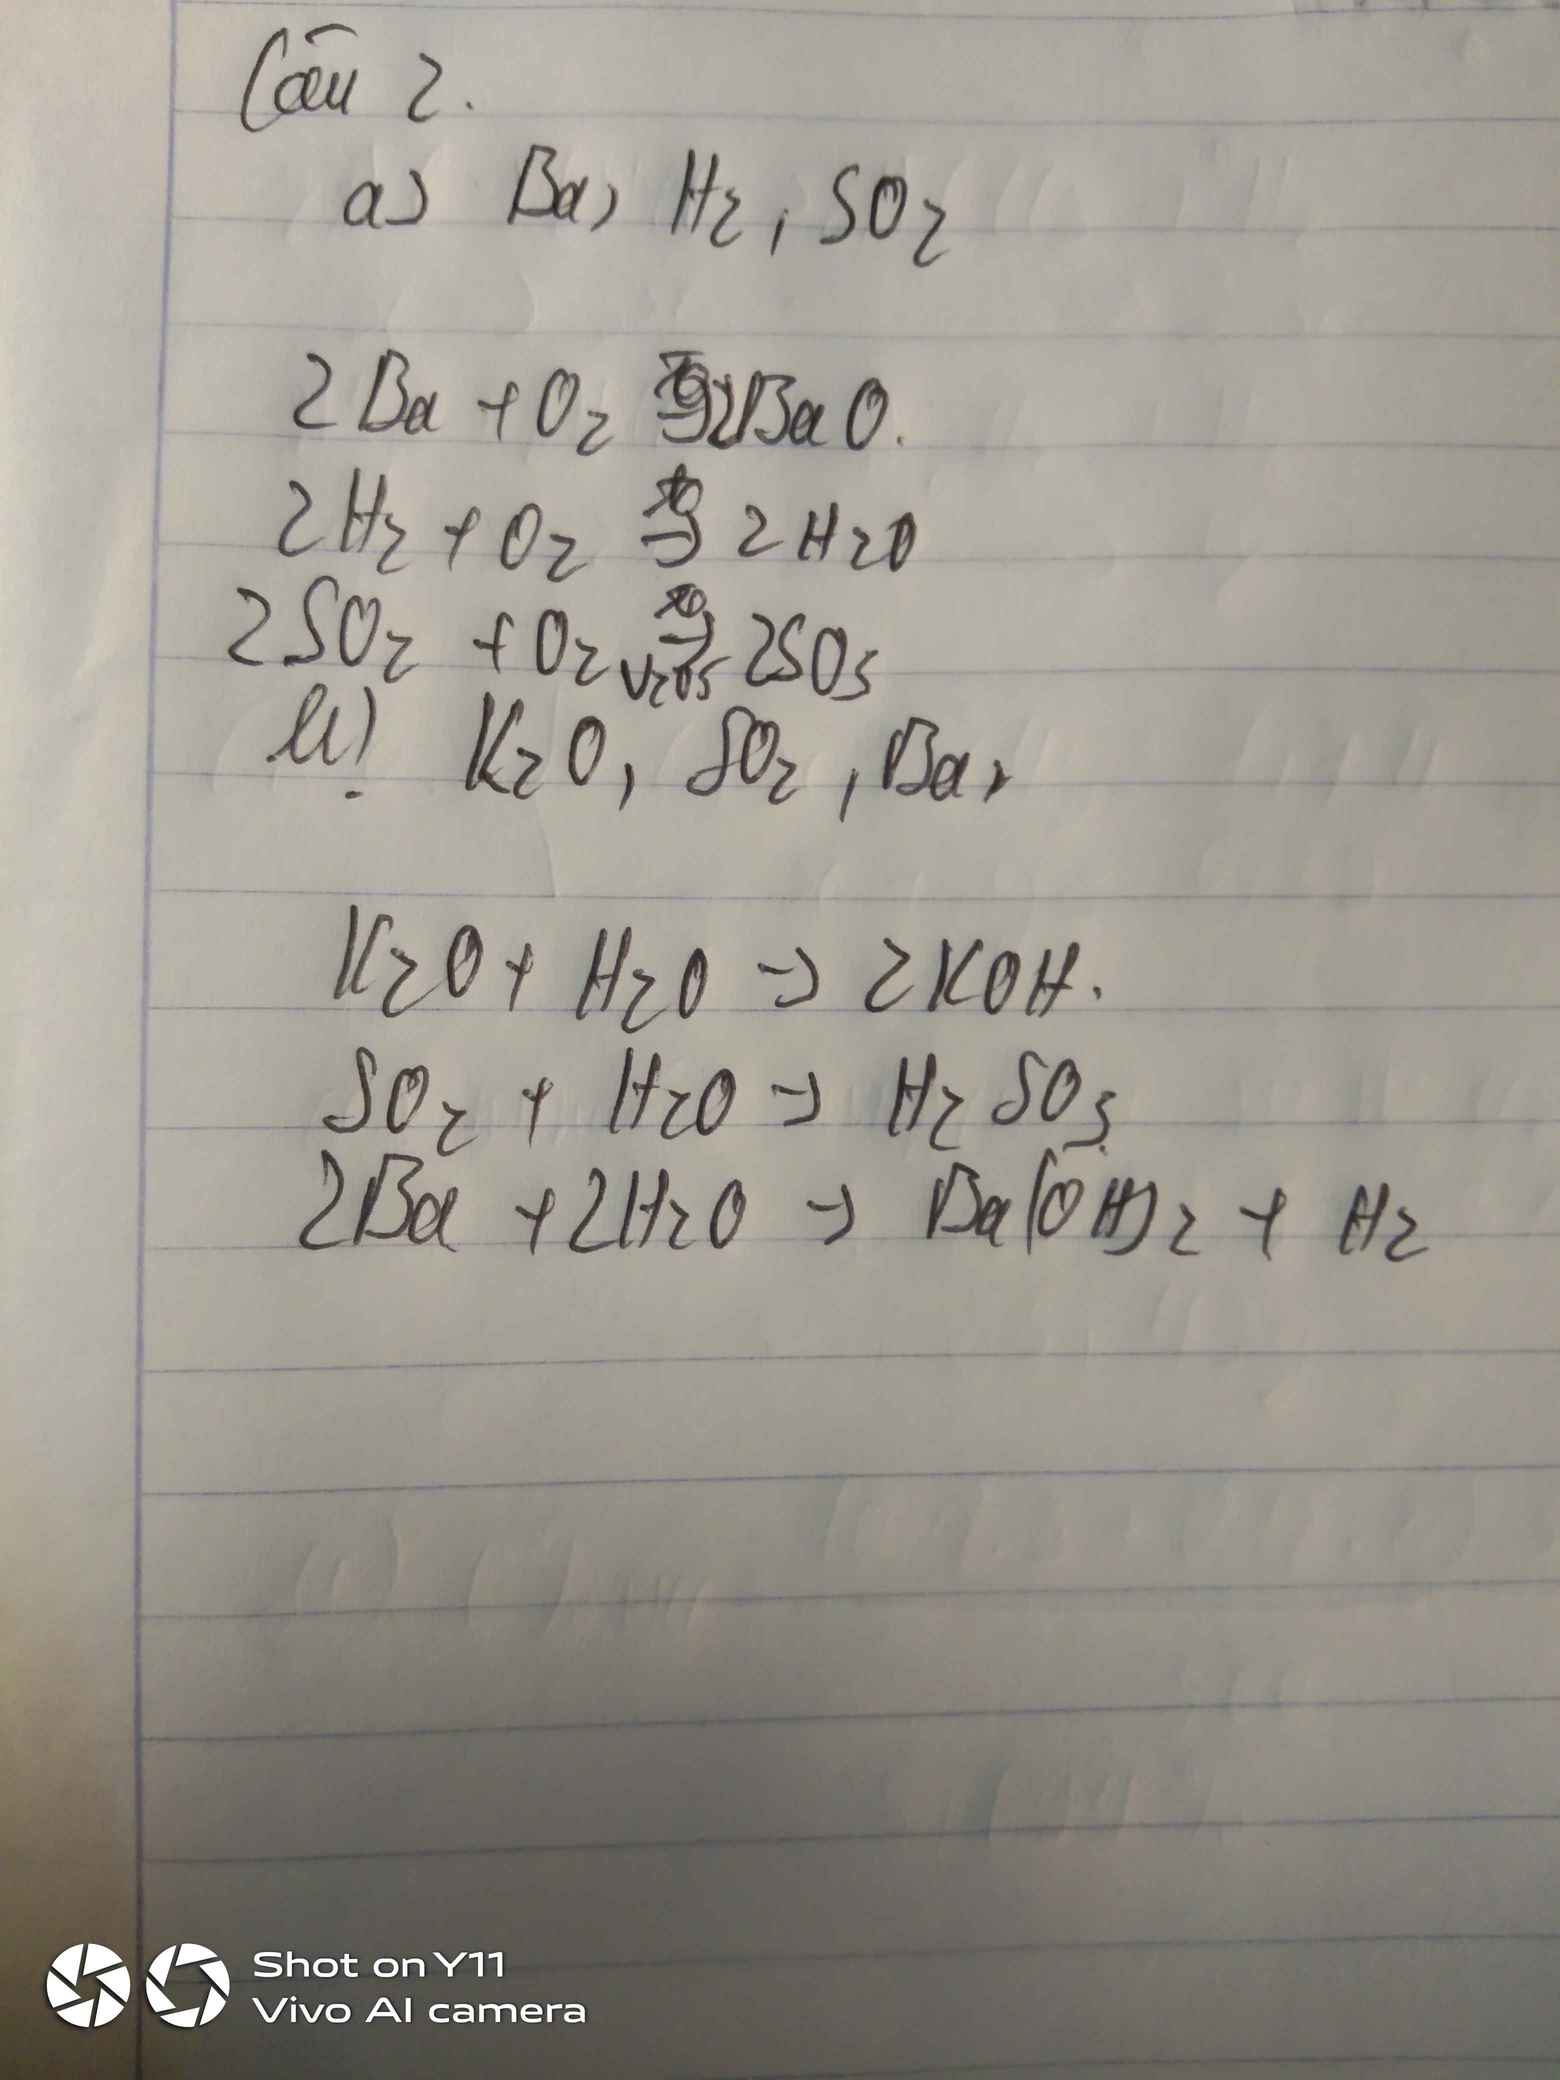 Câu 2.
a) Ba, H2, SO2
2Ba + O2 → 2BaO.
2H2 + O2 t° → 2H2O
2SO2 + O2 t° → V2O5 2SO3
b) K2O, SO2, Ba,
K2O + H2O → 2KOH.
SO2 + H2O → H2SO3
2Ba + 2H2O → Ba(OH)2 + H2
Shot on Y11
Vivo AI camera